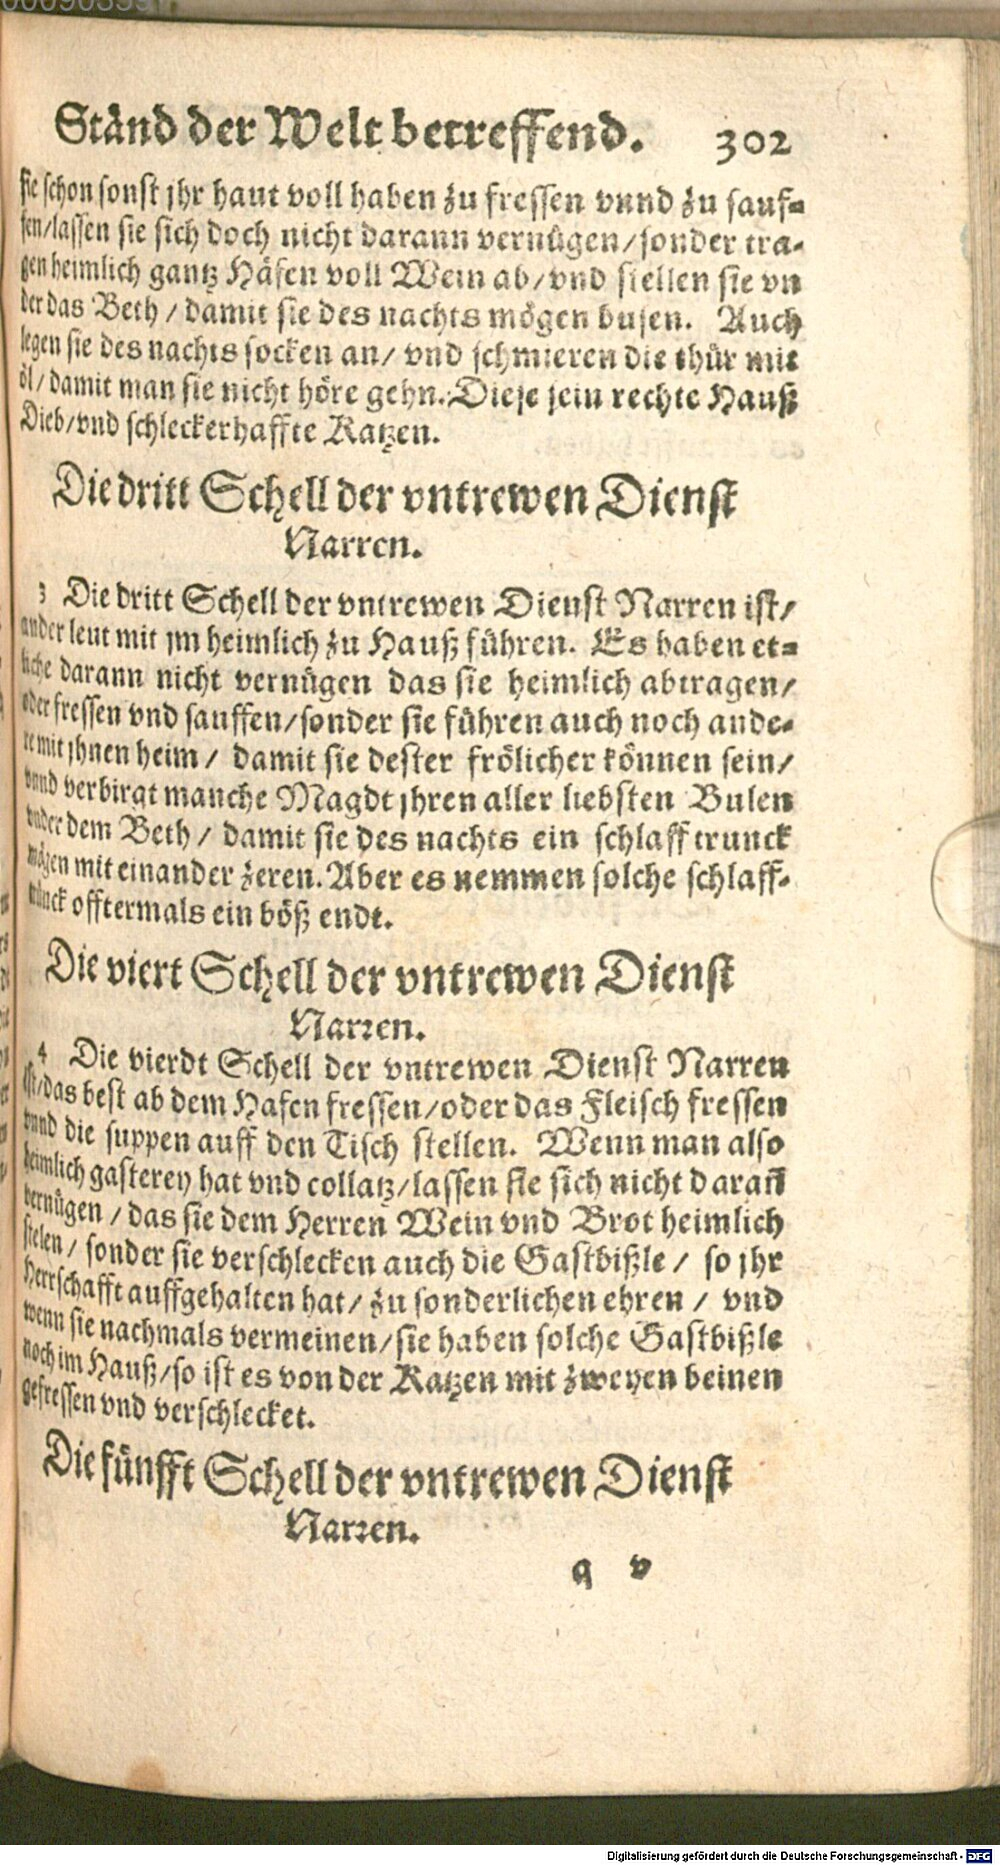 Ständ der Welt betreffend. 302
sie schon sonst jhr haut voll haben zu fressen vnnd zu sauf-
fen/lassen sie sich doch nicht darann vernügen/sonder tra-
gen heimlich gantz Häfen voll Wein ab/vnd stellen sie vn
der das Beth / damit sie des nachts mögen busen. Auch
legen sie des nachts socken an/ vnd schmieren die thür mit
öl/ damit man sie nicht höre gehn. Diese sein rechte Hauß
Dieb/vnd schleckerhaffte Katzen.
Die dritt Schell der vntrewen Dienst
Narren.
3 Die dritt Schell der vntrewen Dienst Narren ist/
ander leut mit jm heimlich zu Hauß führen. Es haben et-
liche darann nicht vernügen das sie heimlich abtragen/
oder fressen vnd sauffen/sonder sie führen auch noch ande-
re mit jhnen heim/ damit sie dester frölicher können sein/
vnnd verbirgt manche Magdt jhren aller liebsten Bulen
vnder dem Beth / damit sie des nachts ein schlafftrunck
mögen mit einander zeren. Aber es nemmen solche schlaff-
trünck offtermals ein böß endt.
Die viert Schell der vntrewen Dienst
Narren.
4 Die vierdt Schell der vntrewen Dienst Narren
ist/das best ab dem Hafen fressen/oder das Fleisch fressen
vnnd die suppen auff den Tisch stellen. Wenn man also
heimlich gasterey hat vnd collatz/lassen sie sich nicht darañ
vernügen / das sie dem Herren Wein vnd Brot heimlich
stelen / sonder sie verschlecken auch die Gastbißle / so jhr
Herrschafft auffgehalten hat/ zu sonderlichen ehren / vnd
wenn sie nachmals vermeinen/sie haben solche Gastbißle
noch im Hauß/so ist es von der Katzen mit zweyen beinen
gefressen vnd verschlecket.
Die fünfft Schell der vntrewen Dienst
Narren.
q v
Digitalisierung gefördert durch die Deutsche Forschungsgemeinschaft - DFG